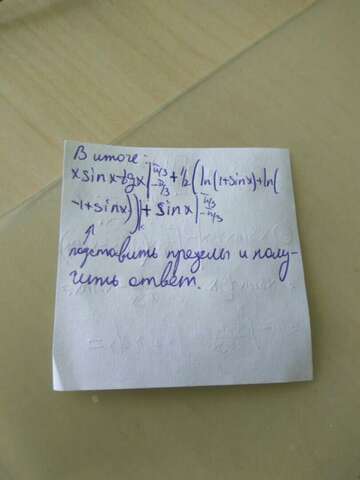 В итоге:
x sinx·tgx|π/3 -π/3 + 1/2(ln(1+sinx)+ln(
-1+sinx))| + sinx|π/3 -π/3
подставить пределы и полу-
чить ответ.